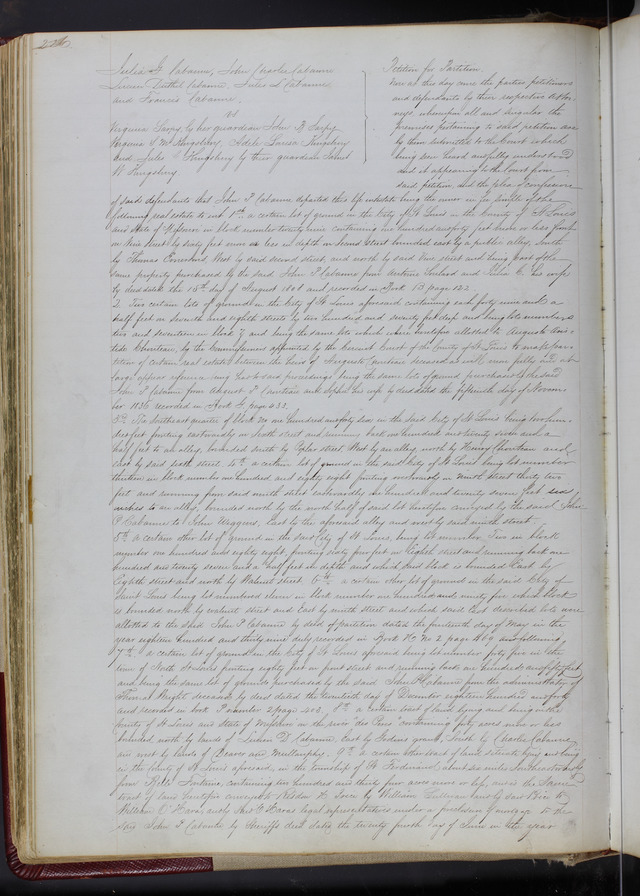 Julia G Cabanne, John Charles Cabanne
Lucien Duthil Cabanne, Jules S Cabanne
and Francis Cabanne
vs
Virginia Sarpy, by her guardian John B Sarpy
Virginia S M Kingsbery Adele Louisa Kingsbery
and Jules Kingsbery by their guardian James
W Kingsbery
Petition for Partition.
Now at this day came the parties petitioners
and defendants by their respective Attor-
neys, whereupon all and singular the
premises pertaining to said petition are
by them submitted to the Court which
being seen heard and fully understood
and it appearing to the Court from
said petition and the plea of confession
of said defendants that John P Cabanne departed this life intestate being the owner in fee simple of the
following real estate to wit 1st a certain lot of ground in the City of St Louis in the County of St Louis
and State of Missouri in block number twenty nine containing one hundred and fifty feet more or less front
on Vine street by sixty feet more or less in depth on second street bounded east by a public alley, South
by Thomas West by said second street and north by said Vine street and being part of the
same property purchased by the said John P Cabanne from Antoine Soulard and Julia C his wife
by deed dated the 15th day of August 1808 and recorded in Book B page 122
2. Two certain lots of ground in the City of St Louis aforesaid containing each forty nine and a
half feet on seventh and eighth streets by two hundred and seventy feet deep and being lots numbers
two and seventeen in block 7 and being the same lots which were heretofore allotted to Auguste Aris-
tide Chouteau, by the Commissioners appointed by the Circuit Court of the County of St Louis to make par-
tition of certain real estate between the heirs of Auguste Chouteau deceased as will more fully and at
large appear reference being had to said proceedings being the same lots of ground purchased by the said
John P Cabanne from August A Chouteau and Sophia his wife by deed dated the fifteenth day of Novem-
ber 1836 recorded in Book page 432.
3rd The Southeast quarter of block No one hundred and forty six in the said City of St Louis being two hun-
dred feet fronting eastwardly on sixth street and running back one hundred and twenty seven and a
half feet to an alley, bounded south by Poplar street West by an alley, north by Henry Chouteau and
East by said sixth street 4th a certain lot of ground in the said City of St Louis being lot number
thirteen in block number one hundred and eighty eight fronting on ninth street thirty two
feet and running from said ninth street eastwardly one hundred and twenty seven feet six
inches to an alley, bounded north by the north half of said lot heretofore conveyed by the said John
P Cabanne to John Wiggins, East to the aforesaid alley and west by said ninth street
5th a certain other lot of ground in the said City of St Louis, being lot number Two in block
number one hundred and eighty eight, fronting sixty four feet on Eighth street and running back one
hundred and twenty seven and a half feet in depth and which said block is bounded East by
Eighth street and north by Walnut street 6th a certain other lot of ground in the said City of
Saint Louis being lot numbered eleven in block number one hundred and ninety five which block
is bounded north by walnut street and East by ninth street and which said last described lots were
allotted to the said John P Cabanne by deed of partition dated the fourteenth day of May in the
year eighteen hundred and thirty nine duly recorded in Book No 2 page 469 and following
7th a certain lot of ground in the City of St Louis aforesaid being lot number forty five in the
town of North St Louis fronting eighty feet on front street and running back one hundred and fifty feet
and being the same lot of ground purchased by the said John P Cabanne from the administrators of
Thomas Wright deceased by deed dated the twentieth day of December eighteen hundred and forty
and recorded in book number 2 page 403. 8th a certain tract of land lying and being in the
County of St Louis and State of Missouri on the river "des Peres" containing forty acres more or less
bounded north by lands of Lucien D Cabanne, East by grant, South by Charles Cabanne
and west by lands of and Mullanphy. 9th a certain other tract of land situate lying and being
in the County of St Louis aforesaid, in the township of St Ferdinand about six miles
from Bella Fontaine, containing two hundred and thirty four acres more or less, and is the same
tract of land heretofore conveyed to Risdon H Price by William Sullivan and by said Price to
William O'Hara and by said O'Haras legal representatives under a foreclosure of mortgage to the
said John P Cabanne by Sheriffs deed dated the twenty fourth day of June in the year